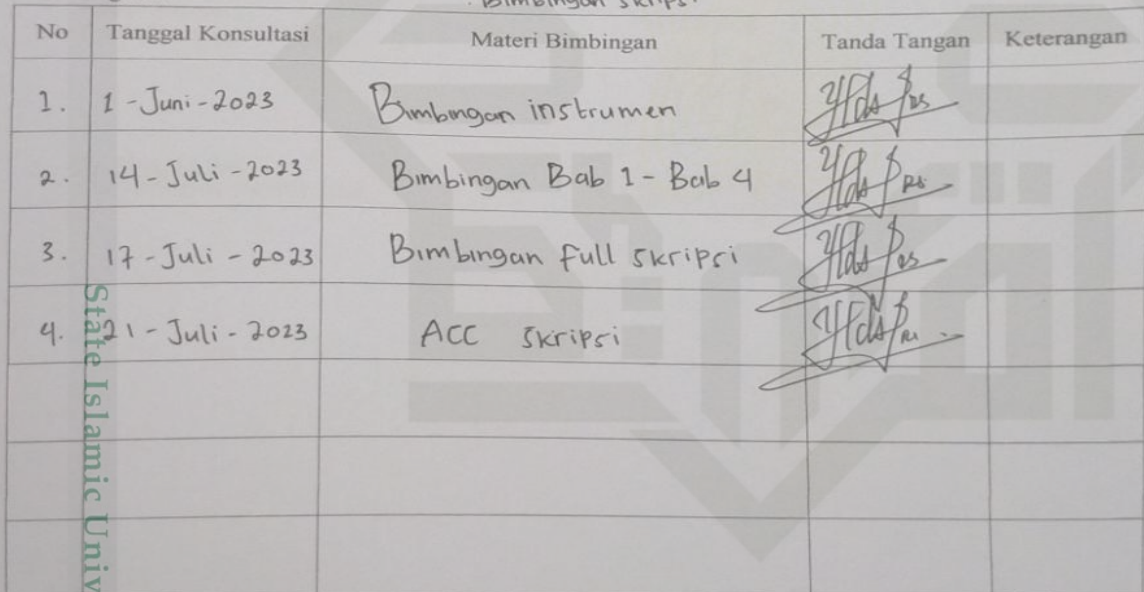 Bimbingan skripsi
No Tanggal Konsultasi Materi Bimbingan Tanda Tangan Keterangan
1. 1 - Juni - 2023 Bimbingan instrumen
2. 14 - Juli - 2023 Bimbingan Bab 1 - Bab 4
3. 17 - Juli - 2023 Bimbingan full skripsi
4. 21 - Juli - 2023 ACC skripsi
State Islamic Univ